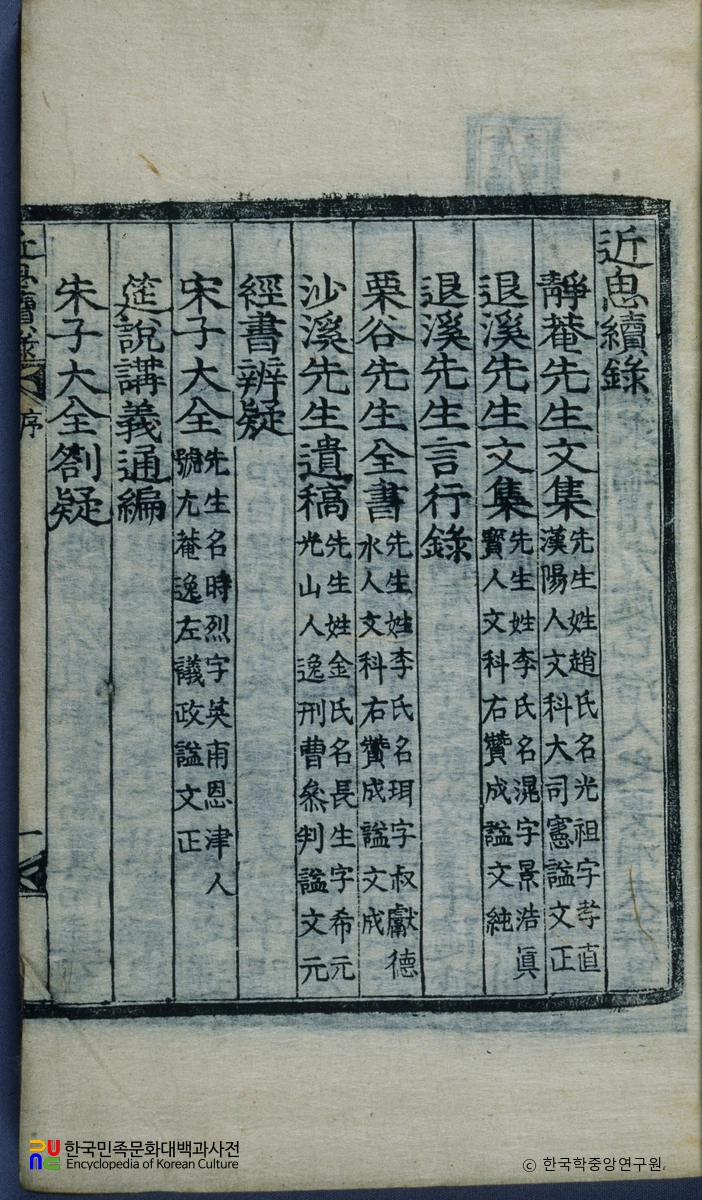 近思續錄
靜菴先生文集 先生姓趙氏名光祖字孝直
漢陽人文科大司憲謚文正
退溪先生文集 先生姓李氏名滉字景浩眞
寶人文科右贊成謚文純
退溪先生言行錄
栗谷先生全書 先生姓李氏名珥字叔獻德
水人文科右贊成謚文成
沙溪先生遺稿 先生姓金氏名長生字希元
光山人逸刑曹參判謚文元
經書辨疑
宋子大全 先生名時烈字英甫恩津人
號尤菴逸左議政謚文正
筵說講義通編
朱子大全劄疑
近思續錄 序 一
한국민족문화대백과사전
Encyclopedia of Korean Culture
ⓒ 한국학중앙연구원